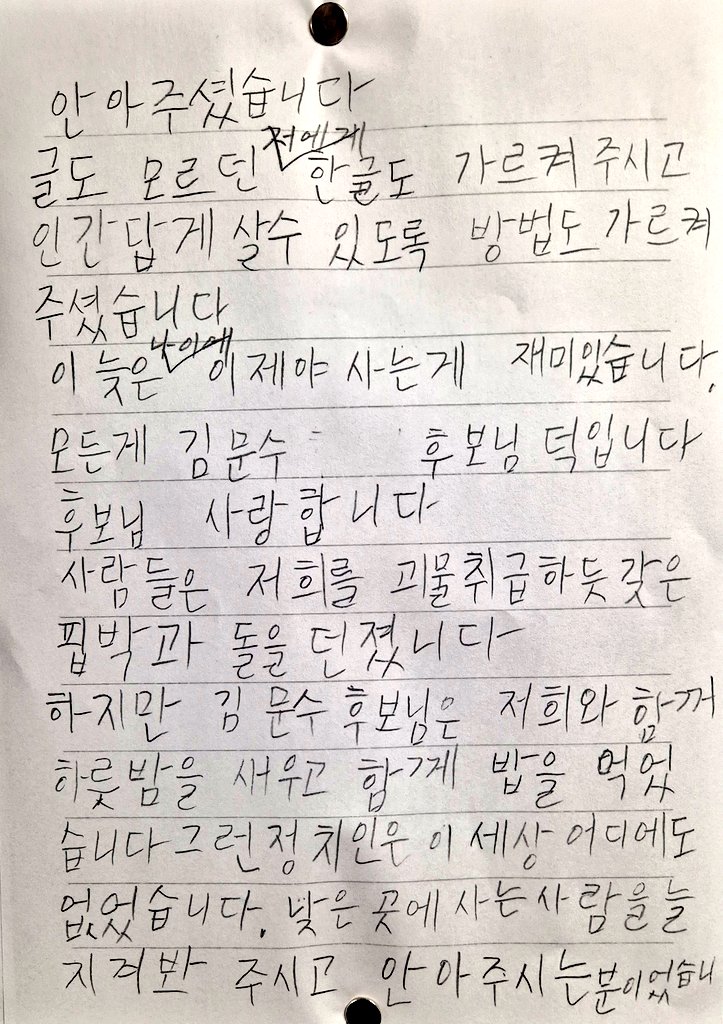 안아주셨습니다
글도 모르던 저에게 한글도 가르켜주시고
인간답게 살수 있도록 방법도 가르켜
주셨습니다
이 늦은 나이에 이제야 사는게 재미있습니다.
모든게 김문수 후보님 덕입니다
후보님 사랑합니다
사람들은 저희를 괴물취급하듯 갖은
핍박과 돌을 던졌습니다
하지만 김문수 후보님은 저희와 함꺼
하룻밤을 새우고 함게 밥을 먹었
습니다 그런정치인은 이 세상 어디에도
없었습니다. 낮은 곳에 사는 사람을 늘
지켜봐 주시고 안아주시는분이었습니